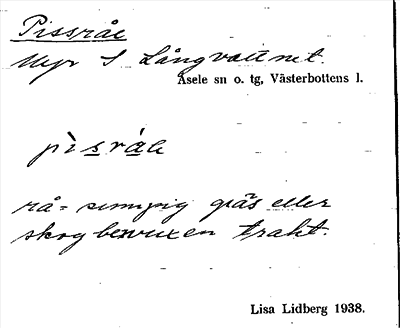 Pissråe
Myr S Långvattnet.
Åsele sn o. tg, Västerbottens l.
pìsråe
rå = sumpig gräs eller
skogbevuxen trakt.
Lisa Lidberg 1938.